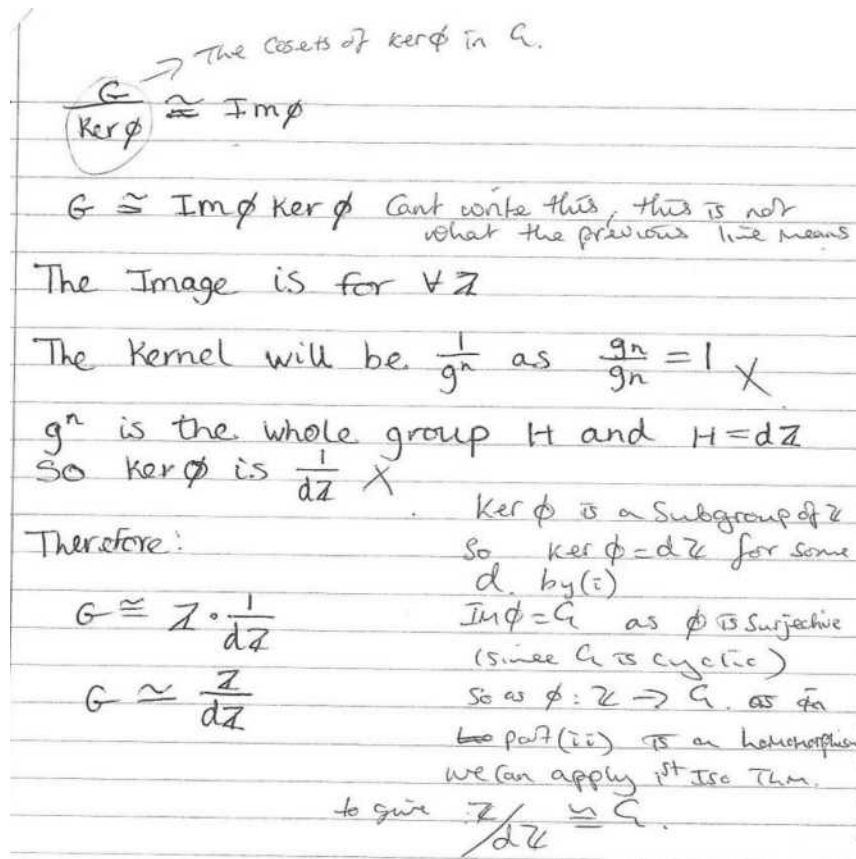 The cosets of ker ϕ in G.
G/Ker ϕ ≅ Im ϕ
G ≅ Im ϕ Ker ϕ Cant write this, this is not
what the previous line means
The Image is for ∀ ℤ
The Kernel will be 1/gⁿ as gn/gn = 1 X
gⁿ is the whole group H and H = dℤ
So Ker ϕ is 1/dℤ X
Ker ϕ is a Subgroup of ℤ
Therefore:
So ker ϕ = dℤ for some
d. by (i)
G ≅ ℤ · 1/dℤ
Im ϕ = G as ϕ is Surjective
(since G is cyclic)
G ≃ ℤ/dℤ
So as ϕ : ℤ → G. as in
part (ii) is an homomorphism
we can apply 1st Iso Thm.
to give ℤ/dℤ ≅ G.